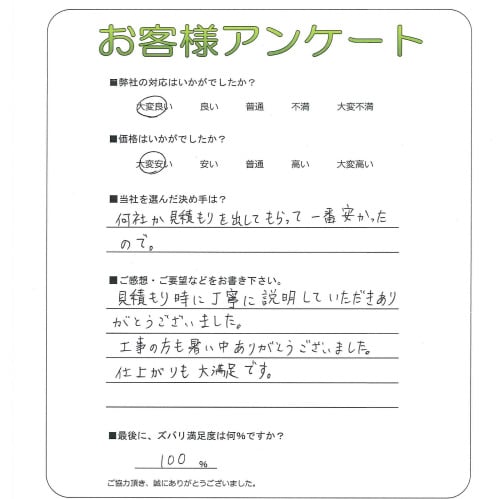 お客様アンケート
■弊社の対応はいかがでしたか？
大変良い 良い 普通 不満 大変不満
■価格はいかがでしたか？
大変安い 安い 普通 高い 大変高い
■当社を選んだ決め手は？
何社か見積もりを出してもらって一番安かった
ので。
■ご感想・ご要望などをお書き下さい。
見積もり時に丁寧に説明していただきあり
がとうございました。
工事の方も暑い中ありがとうございました。
仕上がりも大満足です。
■最後に、ズバリ満足度は何％ですか？
100 ％
ご協力頂き、誠にありがとうございました。